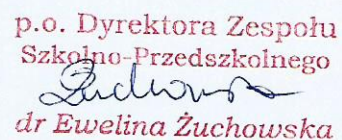 p.o. Dyrektora Zespołu
Szkolno-Przedszkolnego
Żuchowska
dr Ewelina Żuchowska